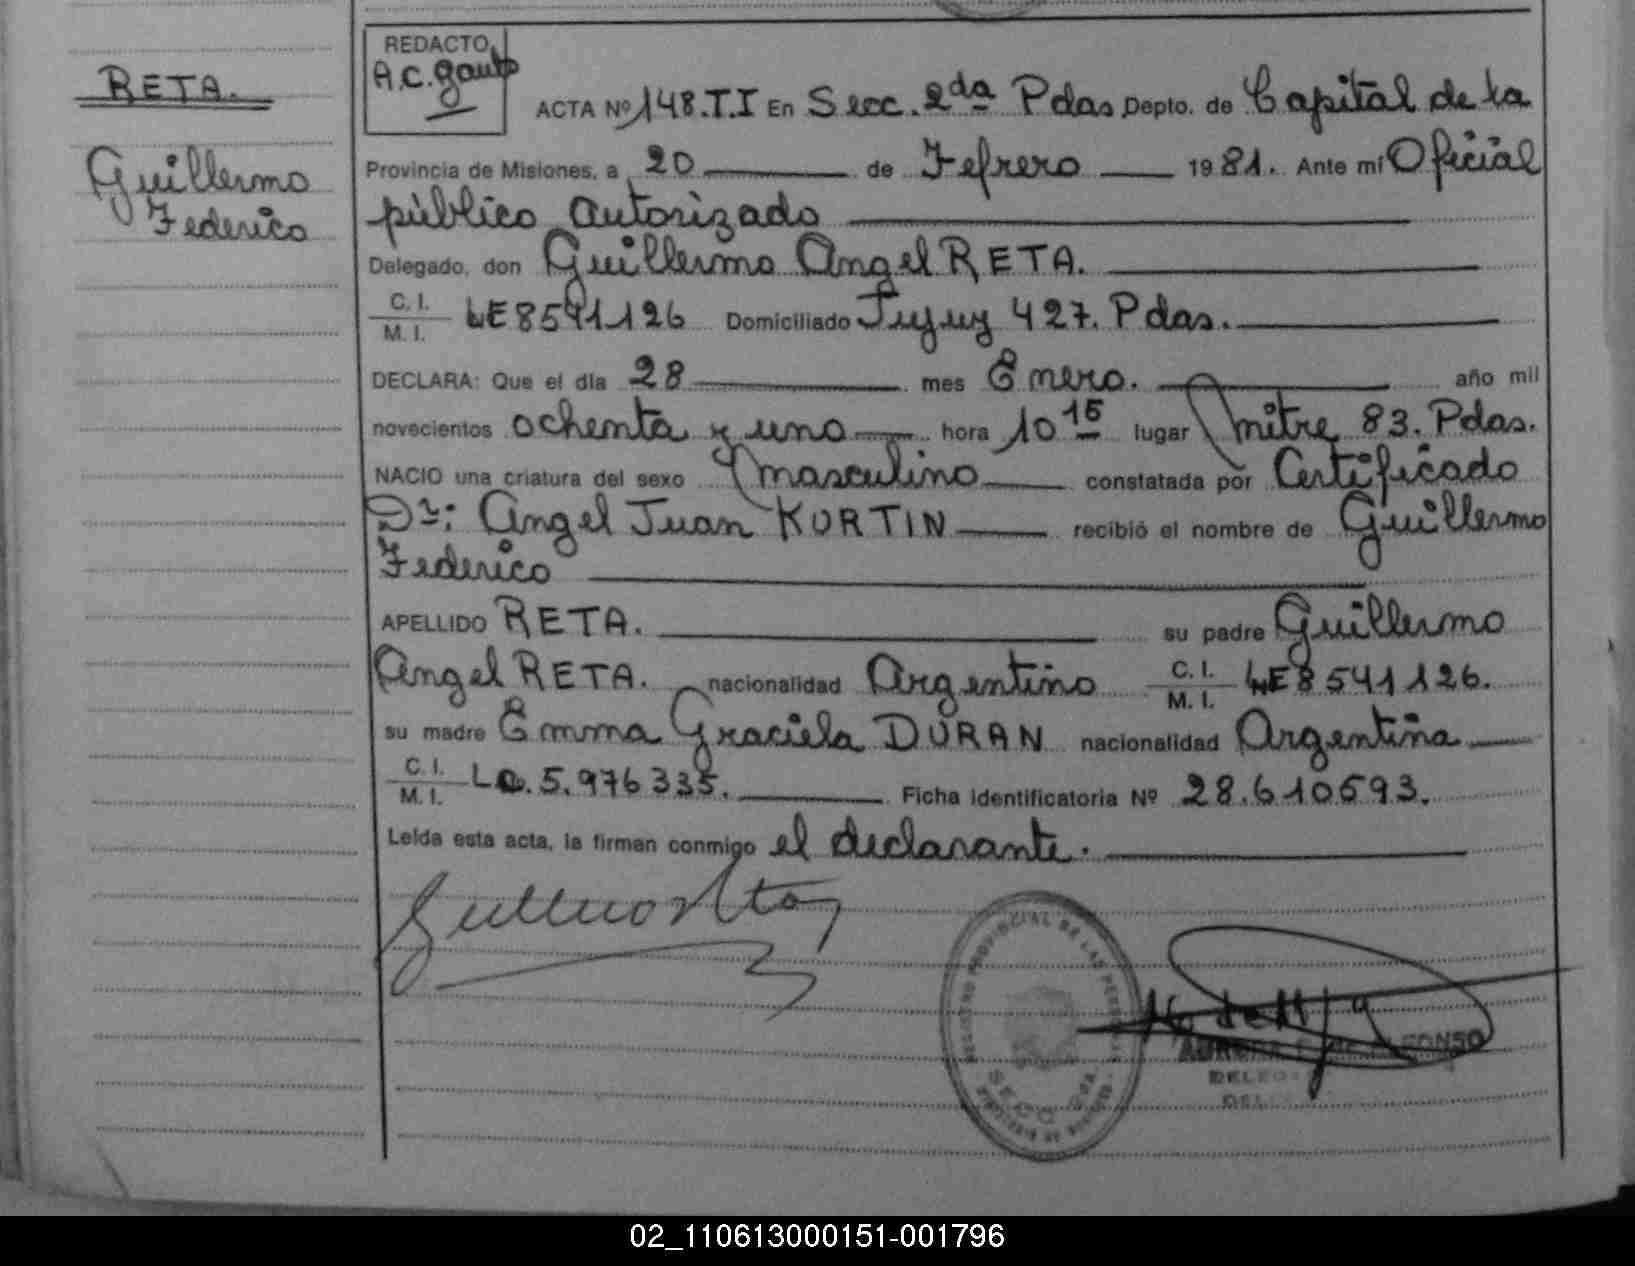 RETA.
Guillermo
Federico
REDACTO
A.C. Gauto
ACTA Nº 148.T.I En Secc. 2da Pdas Depto. de Capital de La
Provincia de Misiones, a 20 de Febrero 1981. Ante mí Oficial
público autorizado
Delegado, don Guillermo Angel RETA.
C. I.
M. I. LE 8541126 Domiciliado Jujuy 427. Pdas.
DECLARA: Que el día 28 mes Enero. año mil
novecientos ochenta y uno hora 10 15 lugar Mitre 83. Pdas.
NACIO una criatura del sexo masculino constatada por Certificado
Dr: Angel Juan KURTIN recibió el nombre de Guillermo
Federico
APELLIDO RETA. su padre Guillermo
Angel RETA. nacionalidad Argentino C. I.
M. I. LE 8541126.
su madre Emma Graciela DURAN nacionalidad Argentina
C. I.
M. I. LC. 5.976335. Ficha identificatoria Nº 28.610593.
Leída esta acta, la firman conmigo el declarante.
REGISTRO PROVINCIAL DE LAS PERSONAS
SECC 2DA.
02_110613000151-001796